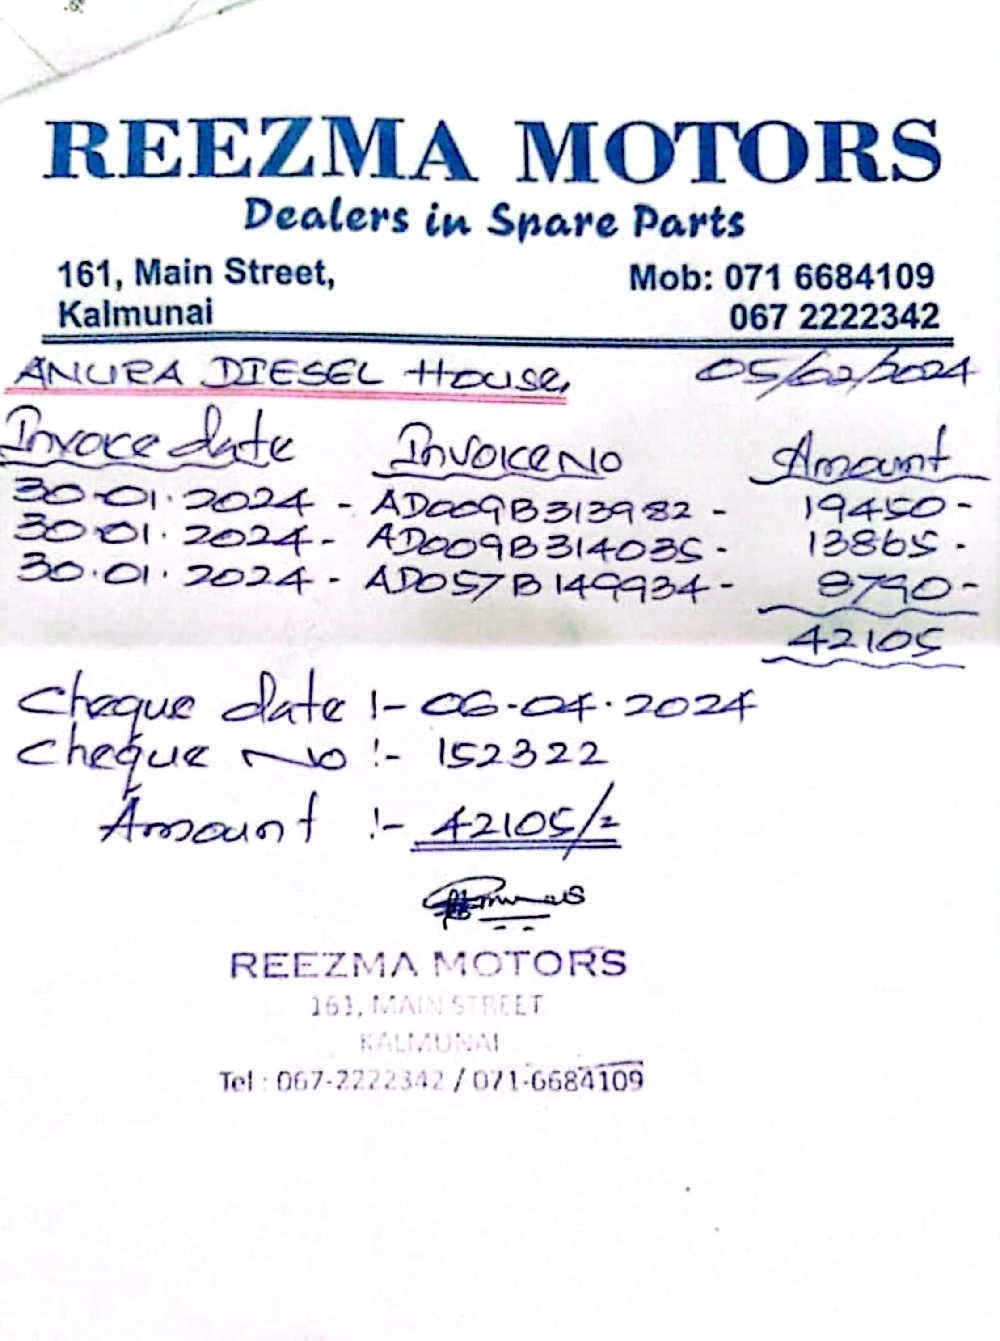 REEZMA MOTORS
Dealers in Spare Parts
161, Main Street,
Kalmunai
Mob: 071 6684109
067 2222342
ANURA DIESEL House, 05/02/2024
Invoce date Invoice No Amount
30-01.2024 - AD009B313982 - 19450-
30-01.2024 - AD009B314035 - 13865-
30.01.2024 - AD057B149934 - 8790-
42105
Cheque date :- 06-04.2024
Cheque No :- 152322
Amount :- 42105/=
REEZMA MOTORS
161, MAIN STREET
KALMUNAI
Tel : 067-2222342 / 071-6684109